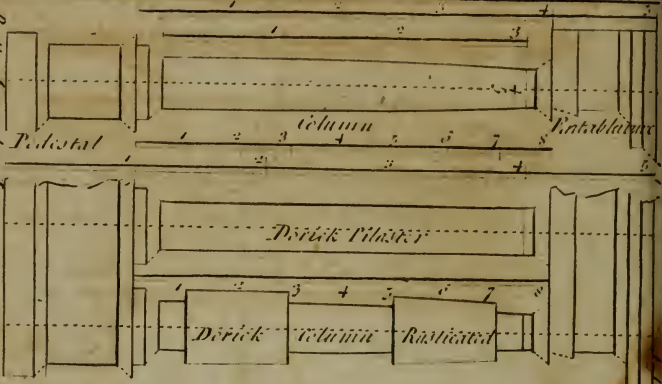 1 2 3 4 5
1 2 3
Column
Pedestal
Entablature
1 2 3 4 5 6 7 8
1 2 3 4 5
Dorick Pilaster
1 2 3 4 5 6 7 8
Dorick Column Rusticated